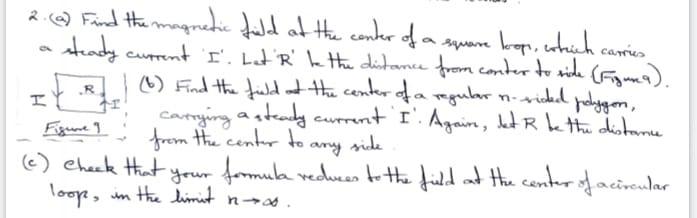 2. (a) Find the magnetic field at the center of a square loop, which carries
a steady current 'I'. Let 'R' be the distance from center to side (Figure 9).
I R I (b) Find the field at the center of a regular n-sided polygon,
carrying a steady current 'I'. Again, let R be the distance
Figure 9 from the center to any side.
(c) Check that your formula reduces to the field at the center of a circular
loop, in the limit n→∞.